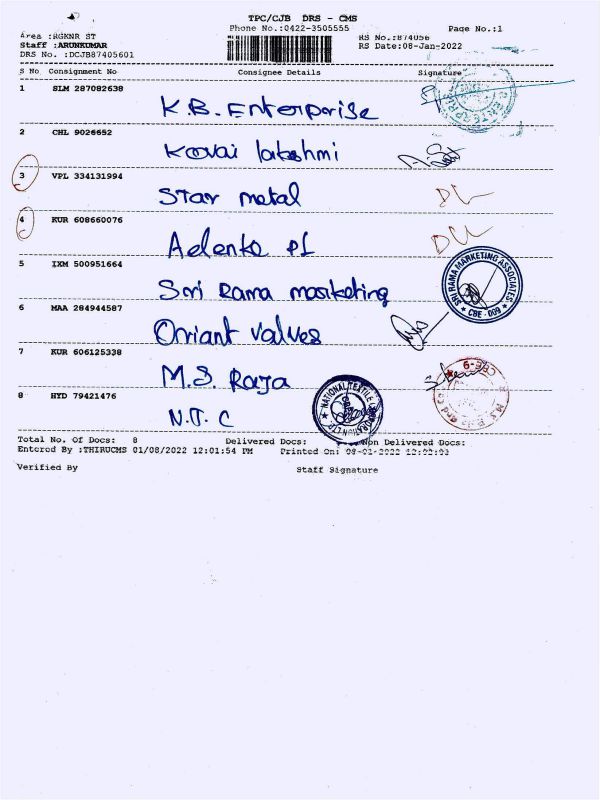 TPC/CJB DRS - CMS
Phone No.:0422-3505555
Page No.:1
Area :RGKNR ST
Staff :ARUNKUMAR
DRS No. :DCJB87405601
RS No.:874056
RS Date:08-Jan-2022
S No Consignment No Consignee Details Signature
1 SLM 287082638
K.B. Enterprise
2 CHL 9026652
Koovai lakshmi
3 VPL 334131994
Star metal
4 KUR 608660076
Adente PL
5 IXM 500951664
Sri Rama marketing
SRI RAMA MARKETING ASSOCIATES
CBE - 009
6 MAA 284944587
Oriant valves
7 KUR 606125338
M.S. Raja
CBE-9
8 HYD 79421476
N.T.C
NATIONAL TEXTILE CORPORATION LTD.
Total No. Of Docs: 8 Delivered Docs: Non Delivered Docs:
Entered By :THIRUCMS 01/08/2022 12:01:54 PM Printed On: 08-01-2022 12:02:03
Verified By Staff Signature